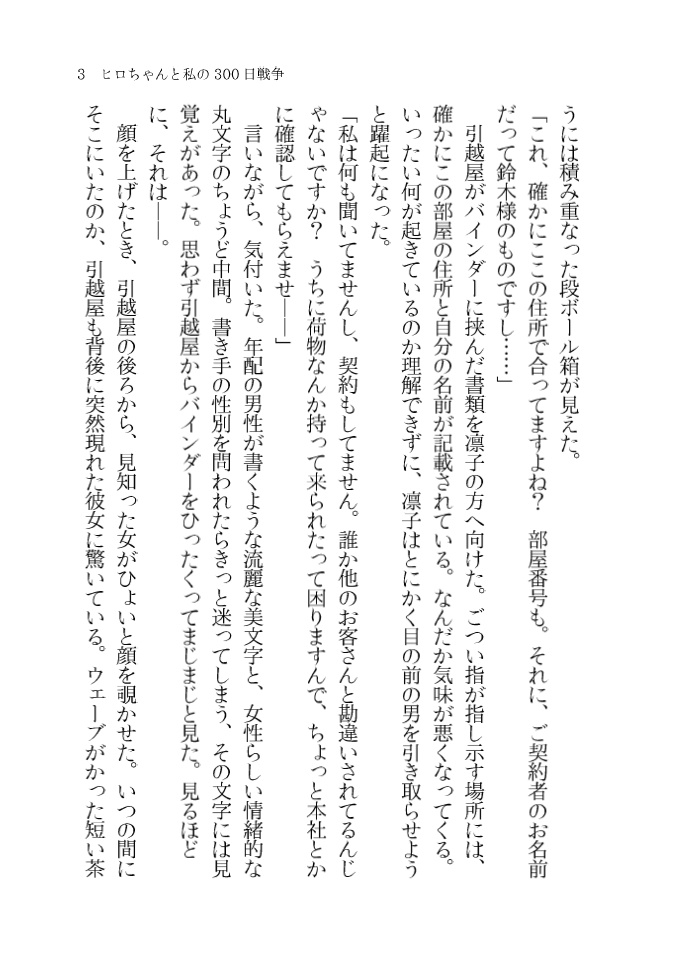 3　ヒロちゃんと私の300日戦争
うには積み重なった段ボール箱が見えた。
「これ、確かにここの住所で合ってますよね？　部屋番号も。それに、ご契約者のお名前
だって鈴木様のものですし……」
　引越屋がバインダーに挟んだ書類を凛子の方へ向けた。ごつい指が指し示す場所には、
確かにこの部屋の住所と自分の名前が記載されている。なんだか気味が悪くなってくる。
いったい何が起きているのか理解できずに、凛子はとにかく目の前の男を引き取らせよう
と躍起になった。
「私は何も聞いてませんし、契約もしてません。誰か他のお客さんと勘違いされてるんじ
ゃないですか？　うちに荷物なんか持って来られたって困りますんで、ちょっと本社とか
に確認してもらえませ――」
　言いながら、気付いた。年配の男性が書くような流麗な美文字と、女性らしい情緒的な
丸文字のちょうど中間。書き手の性別を問われたらきっと迷ってしまう、その文字には見
覚えがあった。思わず引越屋からバインダーをひったくってまじまじと見た。見るほど
に、それは――。
　顔を上げたとき、引越屋の後ろから、見知った女がひょいと顔を覗かせた。いつの間に
そこにいたのか、引越屋も背後に突然現れた彼女に驚いている。ウェーブがかった短い茶